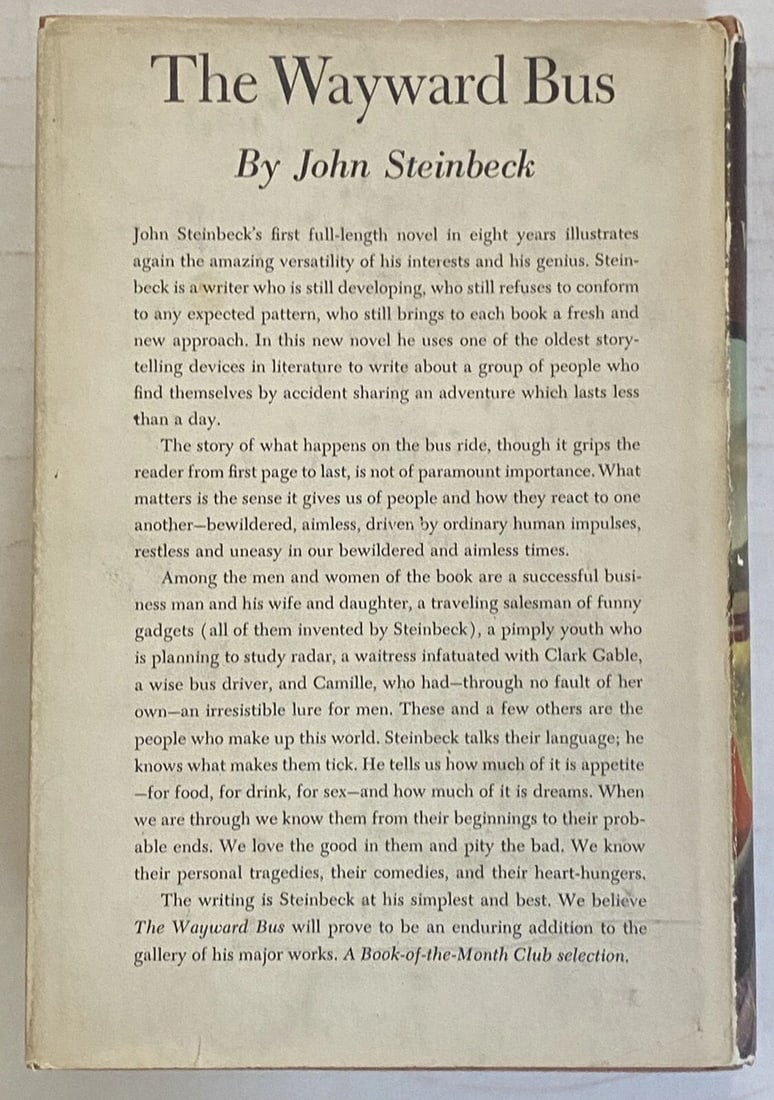 The Wayward Bus
By John Steinbeck
John Steinbeck's first full-length novel in eight years illustrates
again the amazing versatility of his interests and his genius. Stein-
beck is a writer who is still developing, who still refuses to conform
to any expected pattern, who still brings to each book a fresh and
new approach. In this new novel he uses one of the oldest story-
telling devices in literature to write about a group of people who
find themselves by accident sharing an adventure which lasts less
than a day.
The story of what happens on the bus ride, though it grips the
reader from first page to last, is not of paramount importance. What
matters is the sense it gives us of people and how they react to one
another—bewildered, aimless, driven by ordinary human impulses,
restless and uneasy in our bewildered and aimless times.
Among the men and women of the book are a successful busi-
ness man and his wife and daughter, a traveling salesman of funny
gadgets (all of them invented by Steinbeck), a pimply youth who
is planning to study radar, a waitress infatuated with Clark Gable,
a wise bus driver, and Camille, who had—through no fault of her
own—an irresistible lure for men. These and a few others are the
people who make up this world. Steinbeck talks their language; he
knows what makes them tick. He tells us how much of it is appetite
—for food, for drink, for sex—and how much of it is dreams. When
we are through we know them from their beginnings to their prob-
able ends. We love the good in them and pity the bad. We know
their personal tragedies, their comedies, and their heart-hungers.
The writing is Steinbeck at his simplest and best. We believe
The Wayward Bus will prove to be an enduring addition to the
gallery of his major works. A Book-of-the-Month Club selection.